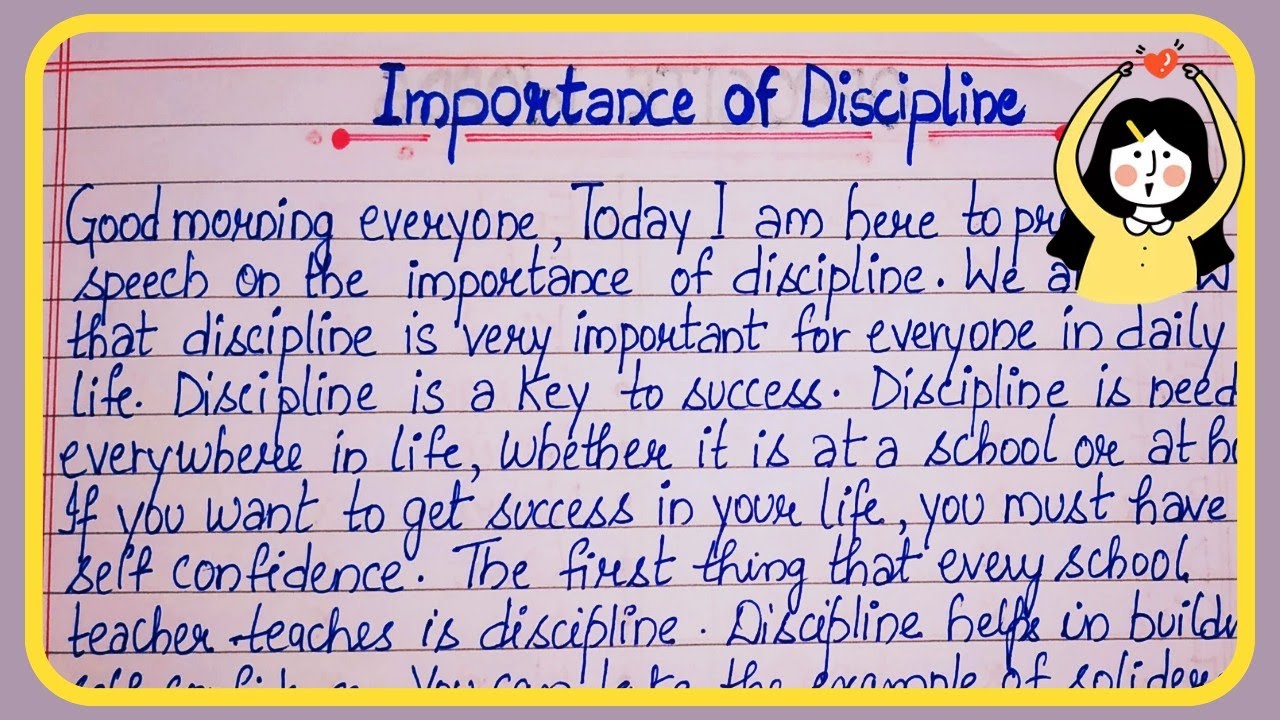 Importance of Discipline
Good morning everyone, Today I am here to
speech on the importance of discipline. We
that discipline is very important for everyone in daily
life. Discipline is a key to success. Discipline is need
everywhere in life, whether it is at a school or at
If you want to get success in your life, you must have
self confidence. The first thing that every school
teacher teaches is discipline. Discipline helps in
You can take the example of